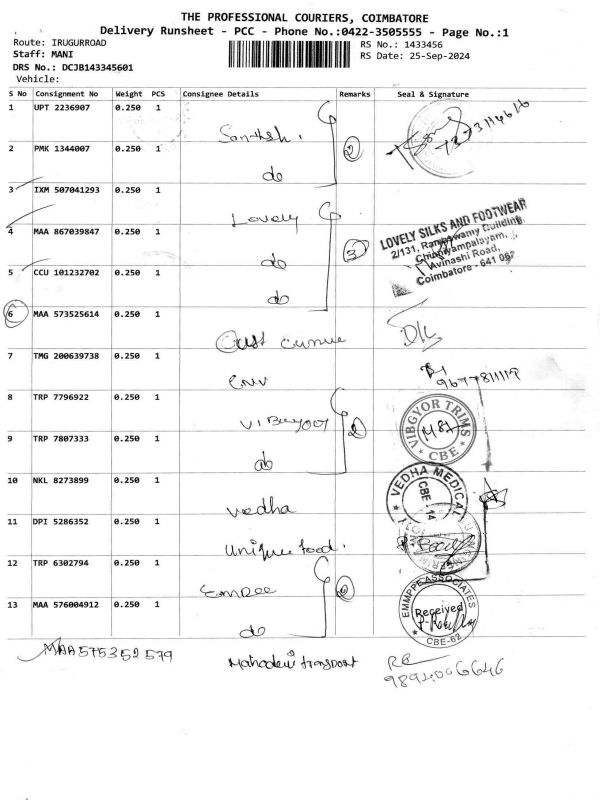 THE PROFESSIONAL COURIERS, COIMBATORE
Delivery Runsheet - PCC - Phone No.:0422-3505555 - Page No.:1
Route: IRUGURROAD RS No.: 1433456
Staff: MANI RS Date: 25-Sep-2024
DRS No.: DCJB143345601
Vehicle:
S No Consignment No Weight PCS Consignee Details Remarks Seal & Signature
1 UPT 2236907 0.250 1
2 PMK 1344007 0.250 1 do
3 IXM 507041293 0.250 1 Lovely
4 MAA 867039847 0.250 1 do 3
LOVELY SILKS AND FOOTWEAR
2/131, Ramaswamy Building
Chinniyampalayam,
Avinashi Road,
Coimbatore - 641 062
5 CCU 101232702 0.250 1 do
6 MAA 573525614 0.250 1
7 TMG 200639738 0.250 1
8 TRP 7796922 0.250 1
VIBGYOR TRIMS
CBE
9 TRP 7807333 0.250 1 do
10 NKL 8273899 0.250 1 Vedha
VEDHA MEDICAL
CBE - 14
11 DPI 5286352 0.250 1 Unique food.
12 TRP 6302794 0.250 1 Empee
13 MAA 576004912 0.250 1 do
EMMPPE ASSOCIATES
Received
CBE-62
MAA 575352579 Mahadevi transport
9894006646